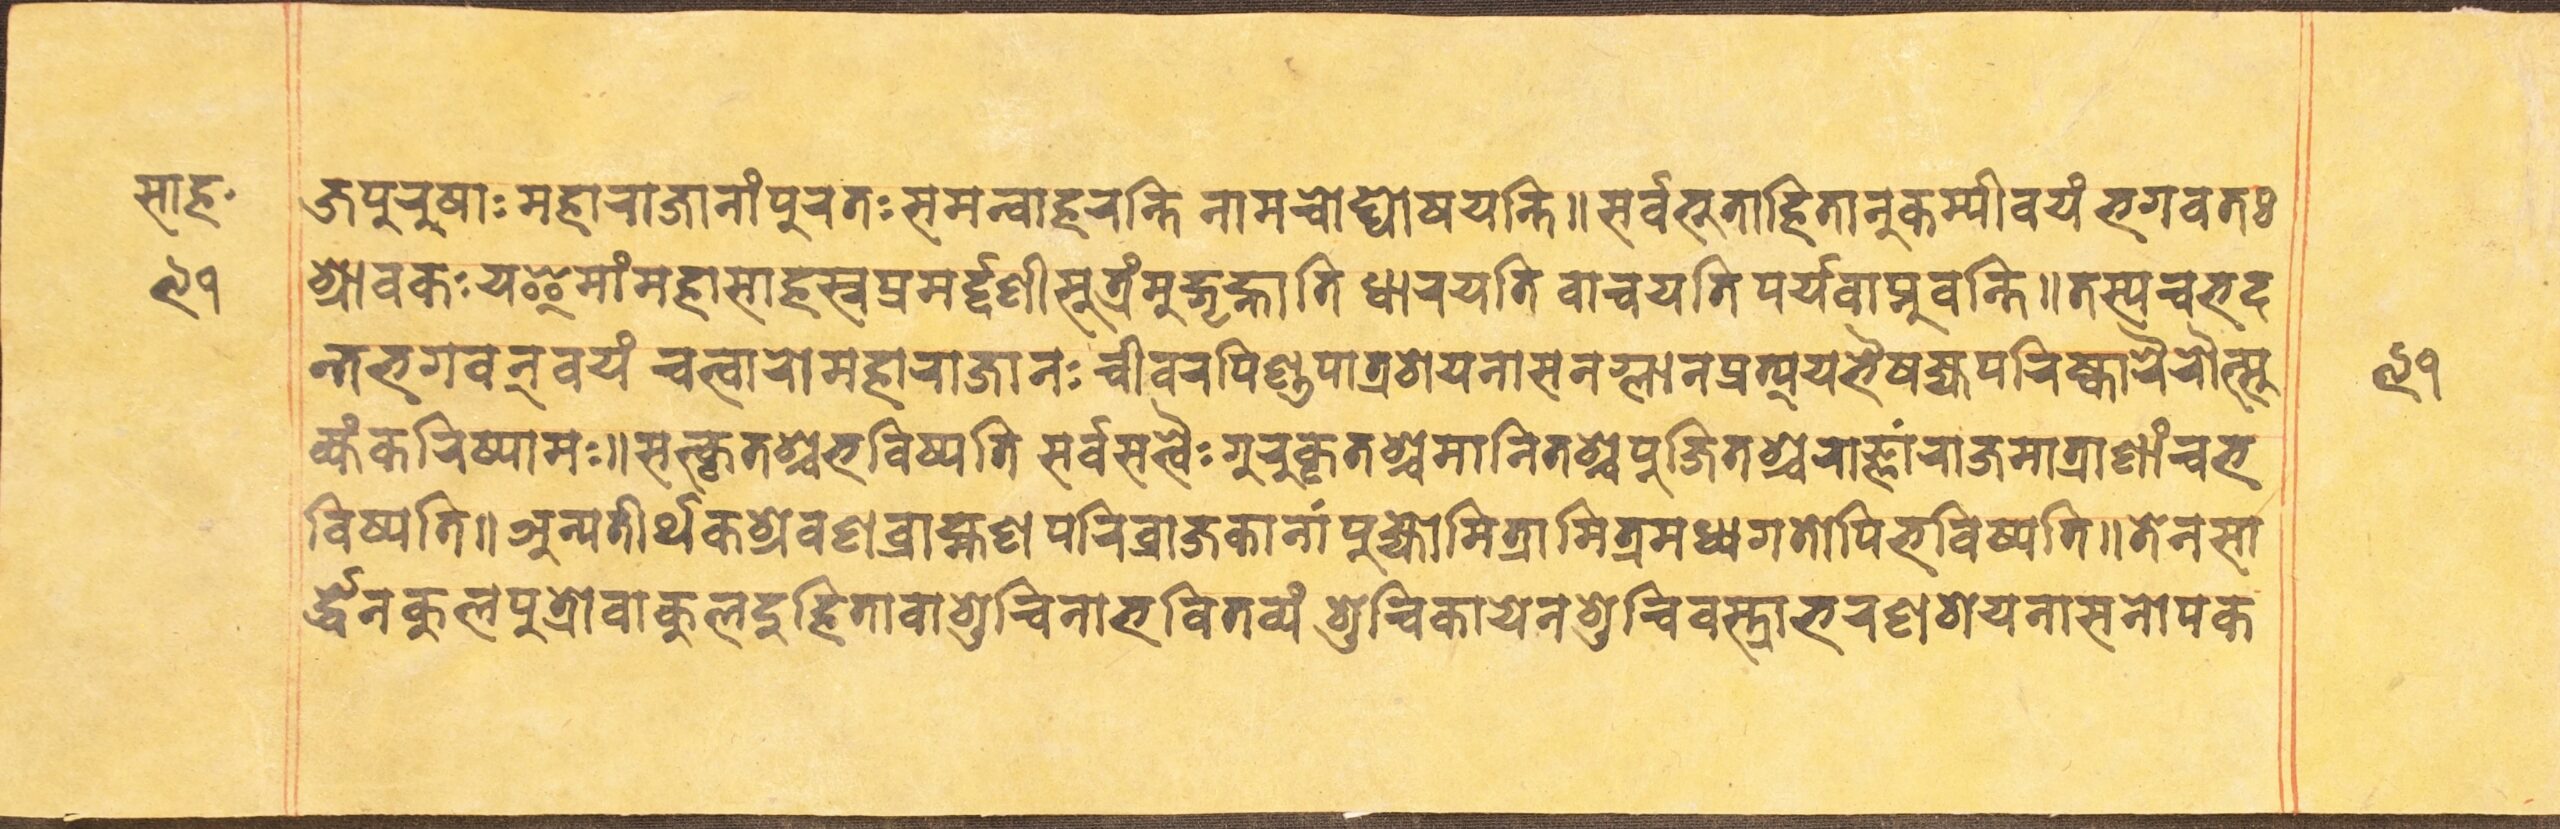 साह॰
जपुरुषाः महाराजानां पुरतः समन्वाहरन्ति नामचोद्घोषयन्ति॥ सर्वभूताहितानुकम्पीवयं भगवतः
९१
श्रावकः यॐमां महासाहस्रप्रमर्द्दणीसूत्रंमुद्गृह्णाति धारयति वाचयति पर्यवाप्नुवन्ति॥ तस्यचभद
न्तभगवन् वयं चत्वारोमहाराजानः चीवरपिण्डपात्रशयनासनग्लानप्रत्ययभैषज्यपरिष्कारैरौत्सु
९१
क्यंकरिष्यामः॥ सत्कृतश्चभविष्यति सर्वसत्वैः गुरुकृतश्चमानितश्चपुजितश्चराज्ञांराजमात्राणांचभ
विष्यति॥ अन्यतीर्थकश्रवणब्राह्मणपरिव्राजकानां पुज्योमित्रामित्रमध्यगतोपिभविष्यति॥ तेनसा
र्द्धेनकुलपुत्रोवाकुलदुहितावाशुचिनाभवितव्यं शुचिकायेनशुचिवस्त्राभरणशयनासनोपक